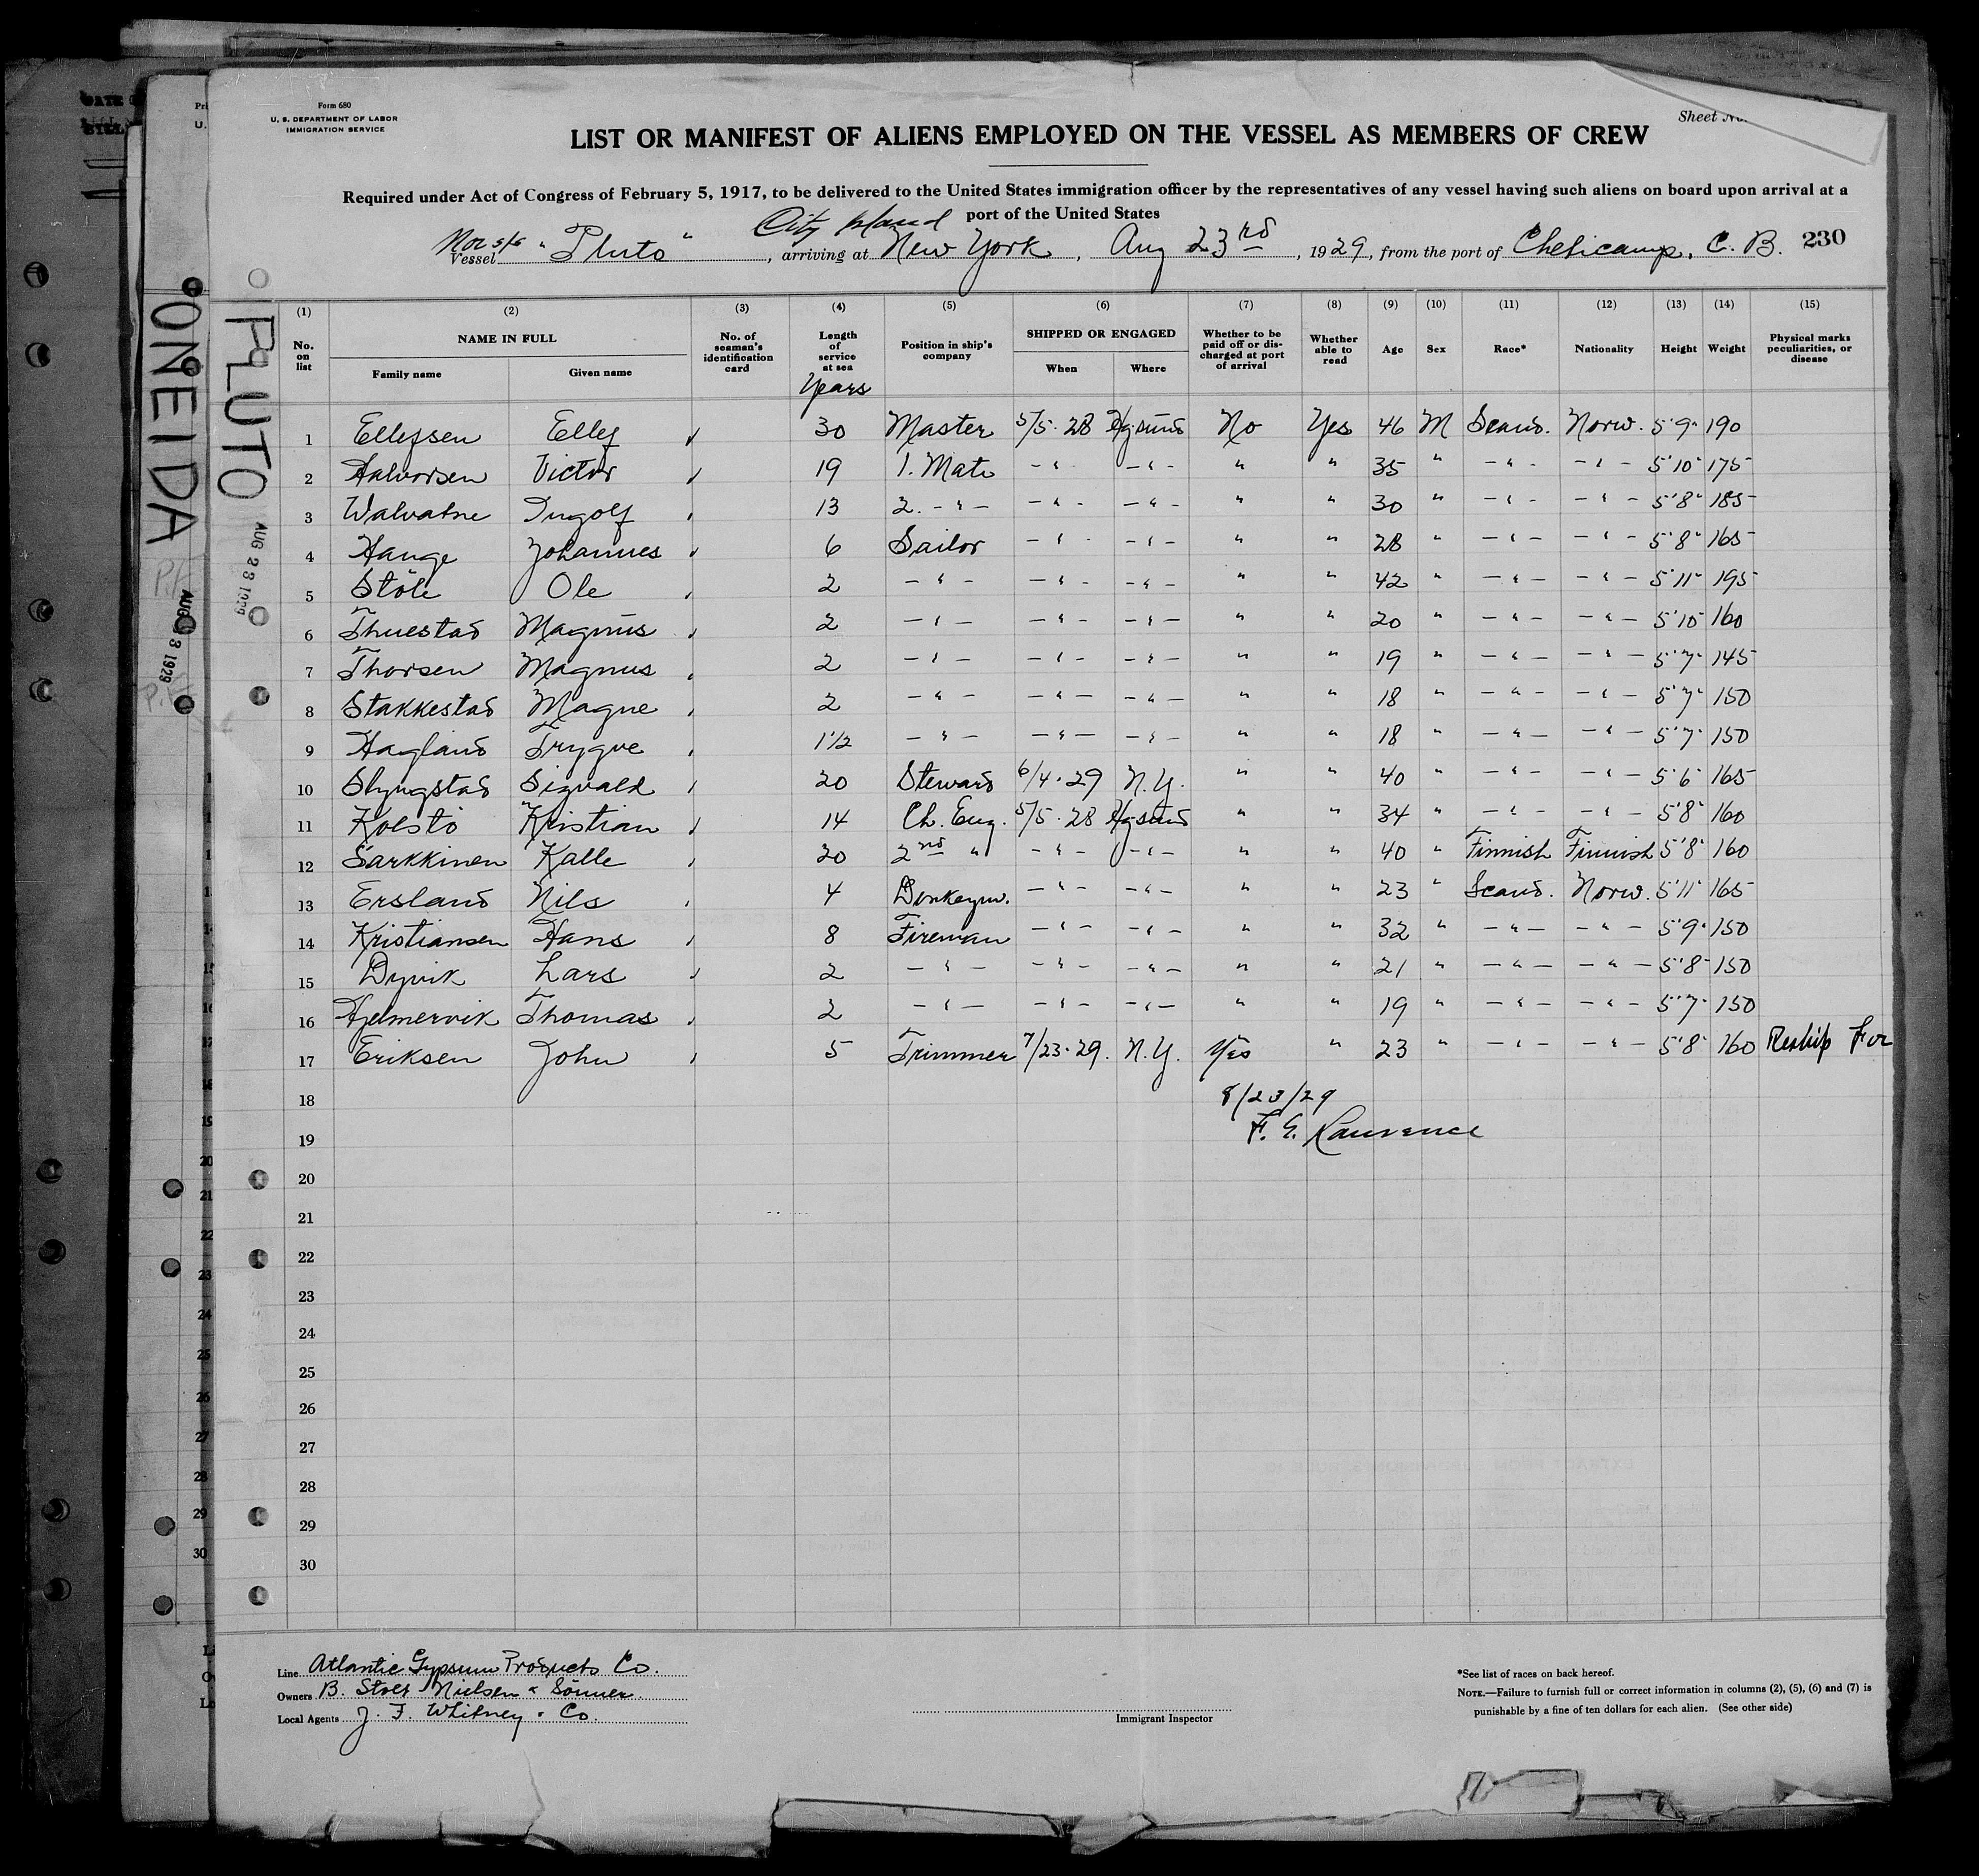 Form 680
U. S. DEPARTMENT OF LABOR
IMMIGRATION SERVICE
Sheet No.
LIST OR MANIFEST OF ALIENS EMPLOYED ON THE VESSEL AS MEMBERS OF CREW
Required under Act of Congress of February 5, 1917, to be delivered to the United States immigration officer by the representatives of any vessel having such aliens on board upon arrival at a
port of the United States
City Island
Vessel Nor s/s "Pluto", arriving at New York, Aug 23rd, 1929, from the port of Cheticamp, C. B. 230
ONEIDA
AUG 23 1929
PLUTO
AUG 23 1929
(1) (2) (3) (4) (5) (6) (7) (8) (9) (10) (11) (12) (13) (14) (15)
No. on list
NAME IN FULL
Family name Given name
No. of seaman's identification card
Length of service at sea
Years
Position in ship's company
SHIPPED OR ENGAGED
When Where
Whether to be paid off or discharged at port of arrival
Whether able to read
Age Sex Race* Nationality Height Weight
Physical marks peculiarities, or disease
1 Ellefsen Ellef 30 Master 5/5-28 Hgsund No Yes 46 M Scand. Norw. 5'9" 190
2 Halvorsen Victor 19 1. Mate -"- -"- " " 35 " -"- -"- 5'10" 175
3 Walvatne Ingolf 13 2. -"- -"- -"- " " 30 " -"- -"- 5'8" 185
4 Hauge Johannes 6 Sailor -"- -"- " " 28 " -"- -"- 5'8" 165
5 Stöle Ole 2 -"- -"- -"- " " 42 " -"- -"- 5'11" 195
6 Thuestad Magnus 2 -"- -"- -"- " " 20 " -"- -"- 5'10" 160
7 Thorsen Magnus 2 -"- -"- -"- " " 19 " -"- -"- 5'7" 145
8 Stakkestad Magne 2 -"- -"- -"- " " 18 " -"- -"- 5'7" 150
9 Hagland Trygve 1 1/2 -"- -"- -"- " " 18 " -"- -"- 5'7" 150
10 Slyngstad Sigvald 20 Steward 6/4-29 N.Y. " " 40 " -"- -"- 5'6" 165
11 Kolstö Kristian 14 Ch. Eng. 5/5-28 Hgsund " " 34 " -"- -"- 5'8" 160
12 Sarkkinen Kalle 20 2nd " -"- -"- " " 40 " Finnish Finnish 5'8" 160
13 Ersland Nils 4 Donkeym. -"- -"- " " 23 " Scand. Norw. 5'11" 165
14 Kristiansen Hans 8 Fireman -"- -"- " " 32 " -"- -"- 5'9" 150
15 Dyvik Lars 2 -"- -"- -"- " " 21 " -"- -"- 5'8" 150
16 Hjelmervik Thomas 2 -"- -"- -"- " " 19 " -"- -"- 5'7" 150
17 Eriksen John 5 Trimmer 7/23-29. N.Y. Yes " 23 " -"- -"- 5'8" 160 Reship For
18 8/23/29
19 F. E. Lawrence
20
21
22
23
24
25
26
27
28
29
30
Line Atlantic Gypsum Products Co.
Owners B. Stolt Nielsen & Sönner.
Local Agents J. F. Whitney & Co.
Immigrant Inspector
*See list of races on back hereof.
NOTE.—Failure to furnish full or correct information in columns (2), (5), (6) and (7) is
punishable by a fine of ten dollars for each alien. (See other side)